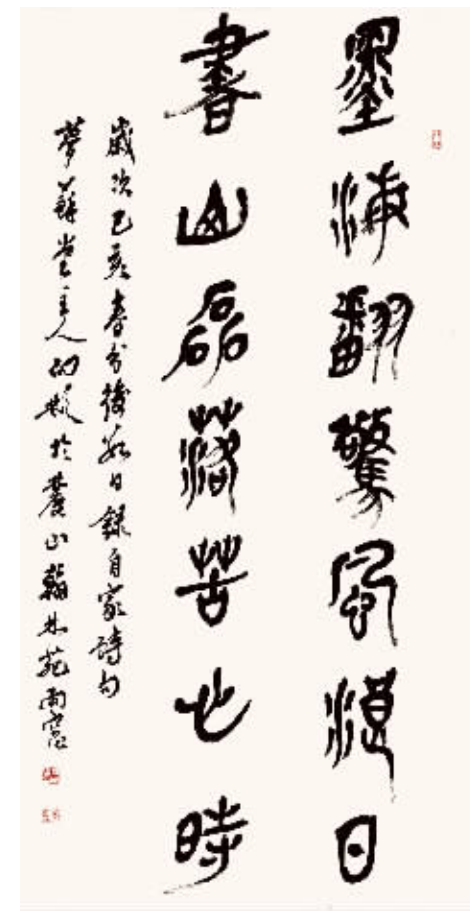 墨海翻驚風浪日
書山磊苦心時
歲次己亥春分後日錄自家詩句
夢蘇堂主人於麓山翰林苑南窗